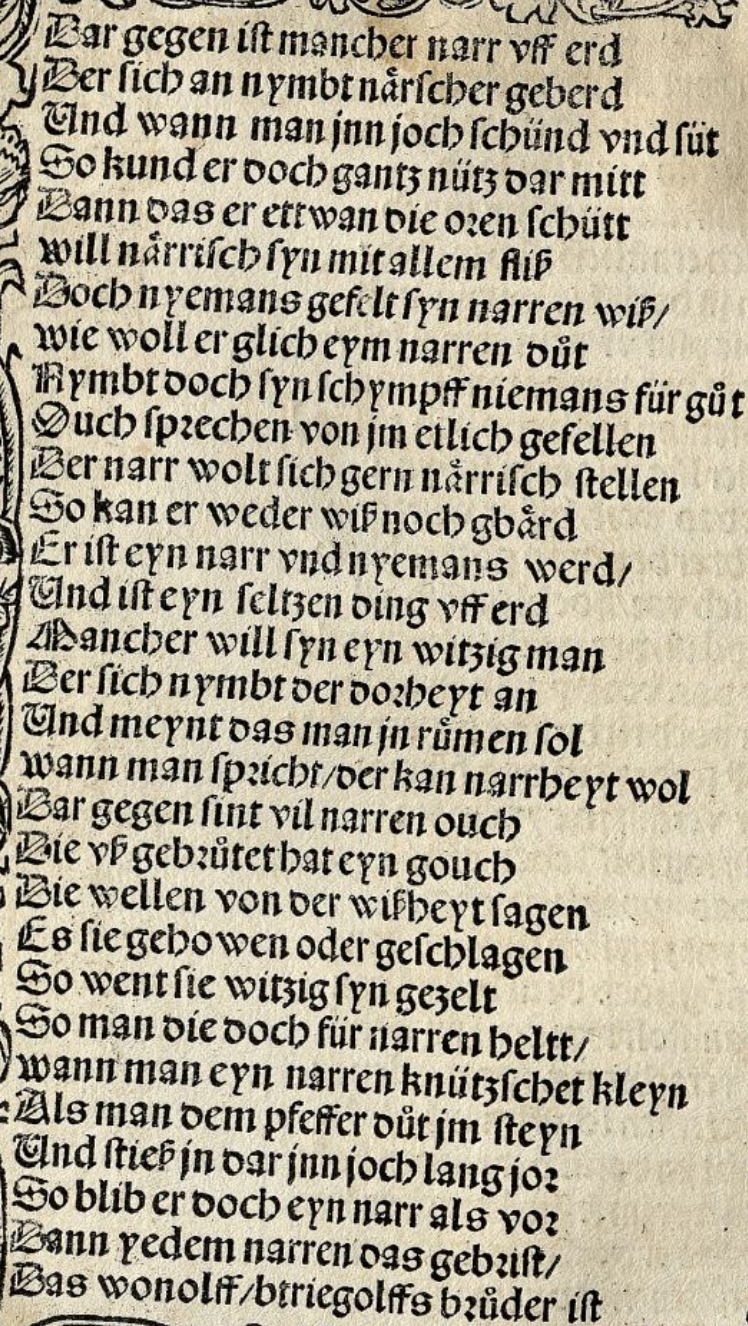 Dar gegen ist mancher narr vff erd
Der sich an nymbt nårscher geberd
Und wann man jnn joch schünd vnd süt
So kund er doch gantz nütz dar mitt
Dann das er ettwan die oren schütt
will nårrisch syn mit allem fliß
Doch nyemans gefelt syn narren wiß/
wie woll er glich eym narren důt
Nymbt doch syn schympff niemans für gůt
Ouch sprechen von jm etlich gefellen
Der narr wolt sich gern nårrisch stellen
So kan er weder wiß noch gbård
Er ist eyn narr vnd nyemans werd/
Und ist eyn seltzen ding vff erd
Mancher will syn eyn witzig man
Der sich nymbt der dorheyt an
Und meynt das man jn růmen sol
wann man spricht/der kan narrheyt wol
Dar gegen sint vil narren ouch
Die vß gebrůtet hat eyn gouch
Die wellen von der wißheyt sagen
Es sie gehowen oder geschlagen
So went sie witzig syn gezelt
So man die doch für narren heltt/
wann man eyn narren knützschet kleyn
Als man dem pfeffer důt jm steyn
Und stieß jn dar jnn joch lang jor
So blib er doch eyn narr als vor
Dann yedem narren das gebrist/
Das wonolff/btriegolffs brůder ist